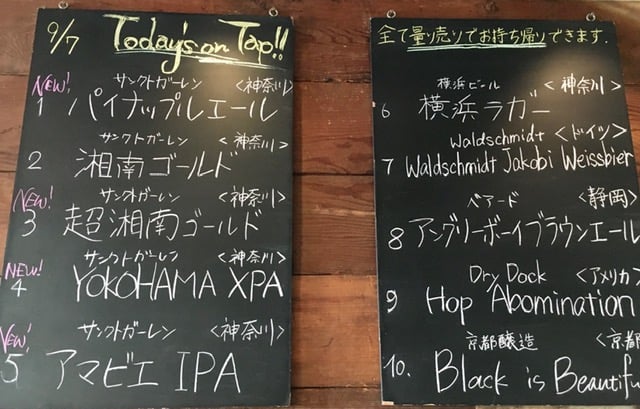 9/7 Today's on Tap!!
NEW! サンクトガーレン <神奈川>
1 パイナップルエール
サンクトガーレン <神奈川>
2 湘南ゴールド
NEW! サンクトガーレン <神奈川>
3 超湘南ゴールド
NEW! サンクトガーレン <神奈川>
4 YOKOHAMA XPA
NEW! サンクトガーレン <神奈川>
5 アマビエ IPA
全て量り売りでお持ち帰りできます.
横浜ビール <神奈川>
6 横浜ラガー
Waldschmidt <ドイツ>
7 Waldschmidt Jakobi Weissbier
ベアード <静岡>
8 アングリーボーイブラウンエール
Dry Dock <アメリカ
9 Hop Abomination
京都醸造 <京都
10. Black is Beautifu